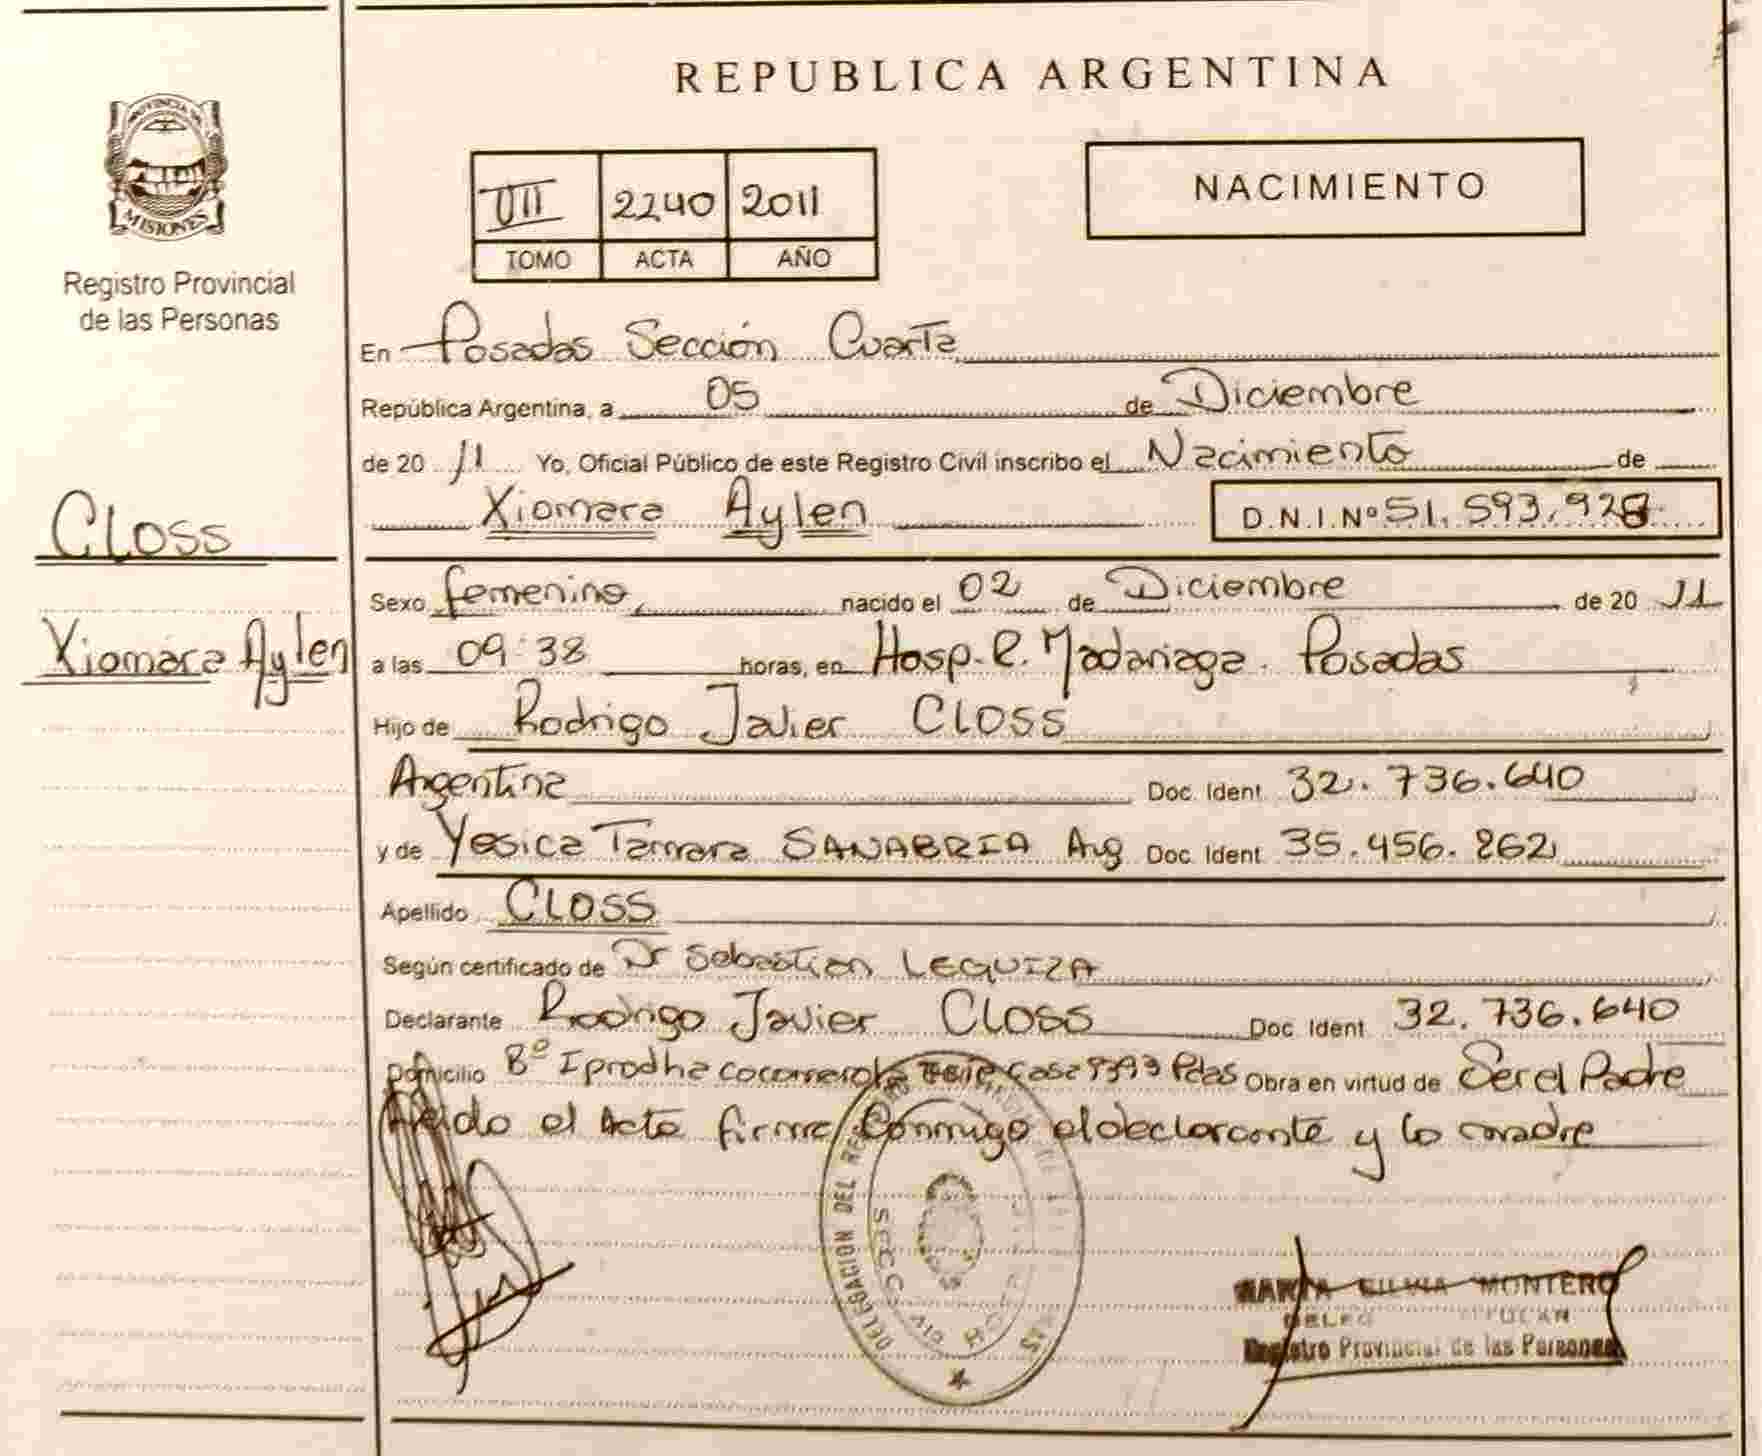 REPUBLICA ARGENTINA
PROVINCIA DE
MISIONES
Registro Provincial
de las Personas
VIII 2240 2011
TOMO ACTA AÑO
NACIMIENTO
En Posadas Sección Cuarta
República Argentina, a 05 de Diciembre
de 20 11 Yo, Oficial Público de este Registro Civil inscribo el Nacimiento de
Xiomara Aylen D.N.I.Nº 51.593.928
CLOSS
Xiomara Aylen
Sexo femenino, nacido el 02 de Diciembre de 20 11
a las 09:38 horas, en Hosp. R. Madariaga. Posadas
Hijo de Rodrigo Javier CLOSS
Argentina Doc. Ident. 32.736.640
y de Yesica Tamara SANABRIA Arg Doc. Ident. 35.456.262
Apellido CLOSS
Según certificado de Dr Sebastian LEGUIZA
Declarante Rodrigo Javier CLOSS Doc. Ident. 32.736.640
Domicilio Bº Iprodha Cocomarola Casa Pdas Obra en virtud de Ser el Padre
Leido el Acta firma Conmigo el declarante y la madre
DELEGACION DEL
SECC
MARTA SILVIA MONTERO
Registro Provincial de las Personas